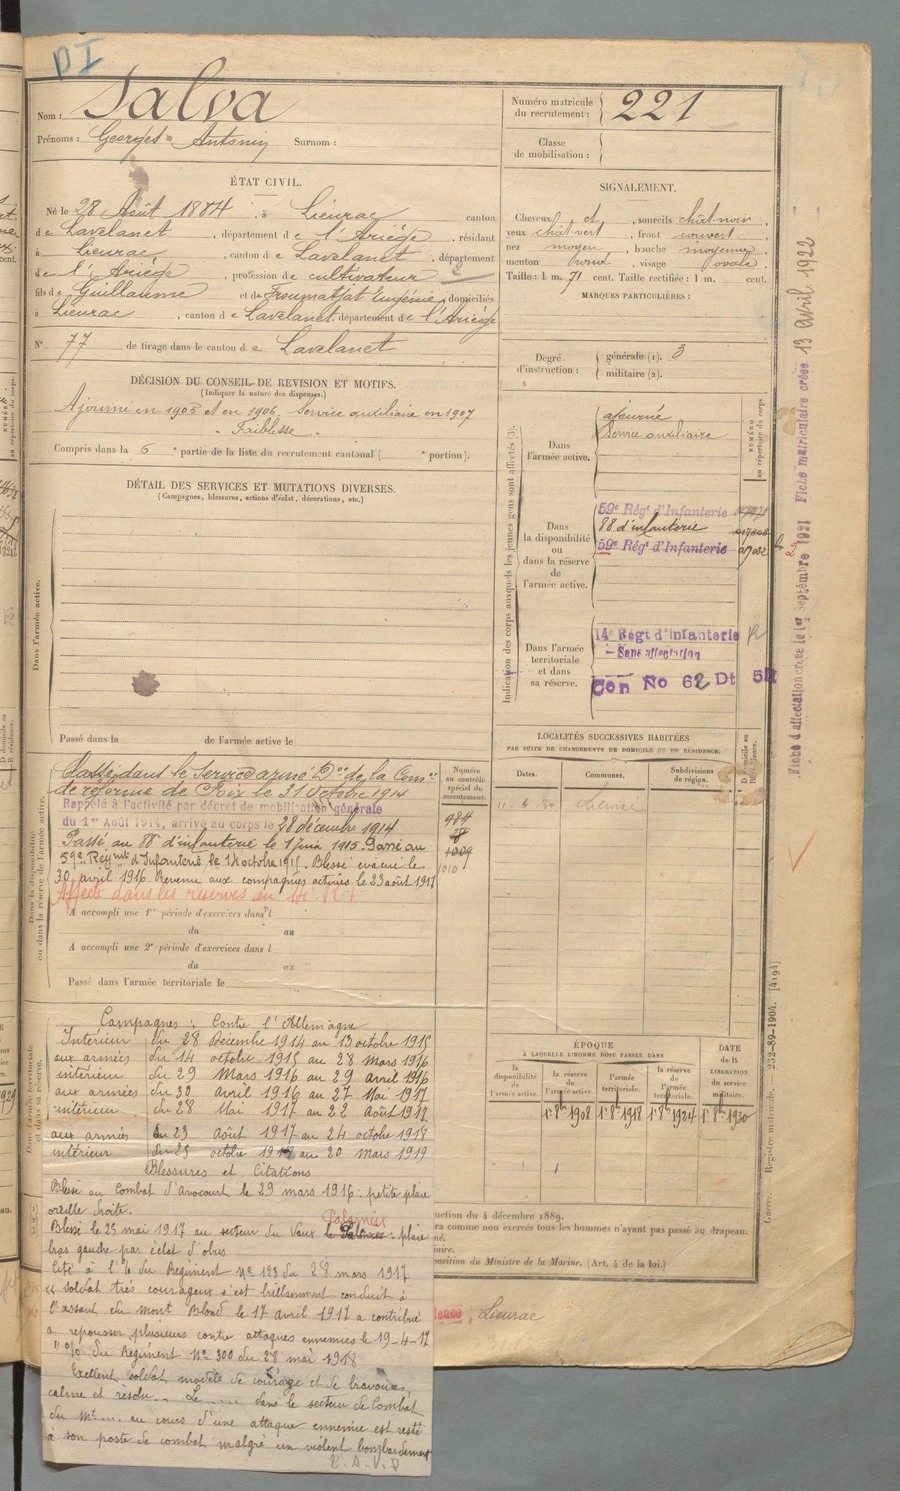 DI
Nom : Salva
Prénoms : Georges = Antonin Surnom :
Numéro matricule du recrutement : 221
Classe de mobilisation :
ÉTAT CIVIL.
Né le 28 Août 1884, à Lieurac canton
de Lavelanet, département de l'Ariége, résidant
à Lieurac, canton de Lavelanet, département
de l'Ariège, profession de cultivateur
fils de Guillaume et de Eugénie, domiciliés
à Lieurac, canton de Lavelanet, département de l'Ariège
N° 77 de tirage dans le canton de Lavelanet
SIGNALEMENT.
Cheveux et, sourcils chât noir,
yeux chât vert, front couvert,
nez moyen, bouche moyenne,
menton rond, visage ovale.
Taille : 1 m. 71 cent. Taille rectifiée : 1 m. cent.
MARQUES PARTICULIÈRES :
Degré d'instruction : générale (1). 3
militaire (2).
DÉCISION DU CONSEIL DE REVISION ET MOTIFS.
(Indiquer la nature des dispenses.)
Ajourné en 1905 et en 1906. Service auxiliaire en 1907
" Faiblesse "
Compris dans la 6e partie de la liste du recrutement cantonal ( e portion).
DÉTAIL DES SERVICES ET MUTATIONS DIVERSES.
(Campagnes, blessures, actions d'éclat, décorations, etc.)
Dans l'armée active.
Passé dans la de l'armée active le
Indication des corps auxquels les jeunes gens sont affectés (3).
NUMÉRO au répertoire du corps.
Dans l'armée active.
ajourné
Service auxiliaire
Dans la disponibilité ou dans la réserve de l'armée active.
59e Régt d'Infanterie
88 d'infanterie
59e Régt d'Infanterie
Dans l'armée territoriale et dans sa réserve.
14e Régt d'Infanterie
- Sans affectation
Con No 62 Dt
LOCALITÉS SUCCESSIVES HABITÉES
PAR SUITE DE CHANGEMENTS DE DOMICILE ET DE RÉSIDENCE.
Dates. Communes. Subdivisions de région.
Dans la disponibilité ou dans la réserve de l'armée active.
Numéro au contrôle spécial du recrutement.
984
1009
1010
Classé dans le Service armé Don de la Comon
de réforme de Foix le 31 Octobre 1914
Rappelé à l'activité par décret de mobilisation générale
du 1er Août 1914, arrivé au corps le 28 décembre 1914
Passé au 88e d'infanterie le 1 juin 1915. Passé au
59e Régmt d'Infanterie le 14 octobre 1915. Blessé évacué le
30 avril 1916. Revenu aux compagnies actives le 23 août 1917
A accompli une 1re période d'exercices dans l
du au
A accompli une 2e période d'exercices dans l
du au
Passé dans l'armée territoriale le
Campagnes : Contre l'Allemagne
Intérieur du 28 Décembre 1914 au 13 octobre 1915
aux armées du 14 octobre 1915 au 28 Mars 1916
intérieur du 29 Mars 1916 au 29 Avril 1916
aux armées du 30 Avril 1916 au 27 Mai 1917
intérieur du 28 Mai 1917 au 22 Août 1917
aux armées du 23 Août 1917 au 24 octobre 1918
intérieur du 25 octobre 1918 au 20 Mars 1919
Blessures et Citations
Blessé au Combat d'Avocourt le 29 mars 1916 : petite plaie
oreille droite.
Blessé le 25 mai 1917 au secteur du Vaux : plaie
bras gauche par éclat d'obus
Cité à l'% du Régiment N° 123 du 28 mars 1917
"Soldat très courageux s'est brillamment conduit à
l'assaut du Mont Blond le 17 avril 1917 a contribué
a repousser plusieurs contre attaques ennemies le 19-4-17
"% du Regiment N° 300 du 28 mai 1918
Exellent soldat modèle de courage et de bravoure,
calme et résolu. Le ..... dans le secteur de Combat
du Mt .... au cours d'une attaque ennemie est resté
à son poste de combat malgré un violent bombardement
ÉPOQUE
À LAQUELLE L'HOMME DOIT PASSER DANS
la disponibilité de l'armée active.
la réserve de l'armée active.
l'armée territoriale.
la réserve de l'armée territoriale.
DATE de la LIBÉRATION du service militaire.
1er 8bre 1908 1er 8bre 1918 1er 8bre 1924 1er 8bre 1930
uction du 4 décembre 1889.
ra comme non exercés tous les hommes n'ayant pas passé au drapeau.
position du Ministre de la Marine. (Art. 4 de la loi.)
Lieurac
Fiche d'affectation créée le 1er Septembre 1921 Fiche matriculaire créée 13 Avril 1922
Guerre. Registre matricule. 232-89-1904. [4194]